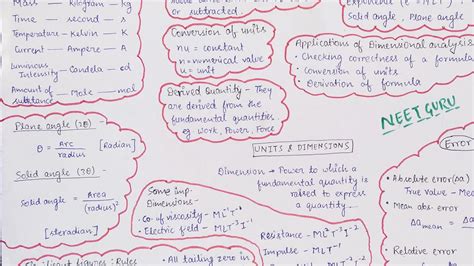 Mass — Kilogram — kg
Time — second — s
Temperature — Kelvin — K
Current — Ampere — A
Luminous
Intensity — Candela — cd
Amount of — Mole — mol
substance
or subtracted.
Conversion of units
nu = constant
n = numerical value
u = unit
Derived Quantity - They
are derived from the
fundamental quantities
eg work, Power, Force
Solid angle, Plane angle
Applications of Dimensional analysis
• Checking correctness of a formula
• Conversion of units
• Derivation of formula
NEET GURU
Plane angle (2θ) -
θ = Arc / radius [Radian]
Solid angle (3θ) -
Solid angle = Area / (radius)²
[steredian]
UNITS & DIMENSIONS
Dimension → Power to which a
fundamental quantity is
raised to express
a quantity.
Some imp.
Dimensions -
• Co. of viscosity - ML⁻¹T⁻¹
• Electric field - MLT⁻³I⁻¹
Resistance - ML²T⁻³I⁻²
Impulse - MLT⁻¹
Error
• Absolute error (Δa)
True value - Mea
• Mean abs. error
Δa mean =
• Relative error
figures : Rules
• All tailing zero in